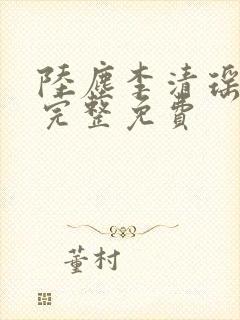 陸塵李清瑶
完整免費
董村